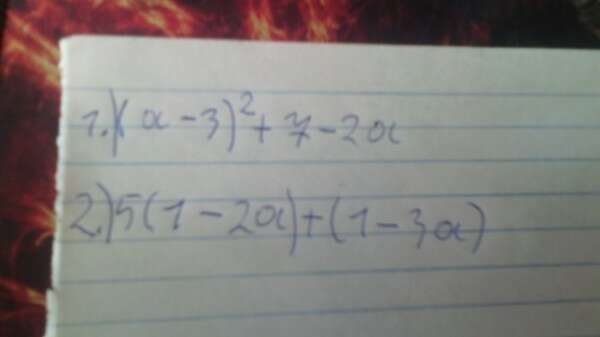 1.) (a-3)²+7-2a
2.) 5(1-2a)+(1-3a)